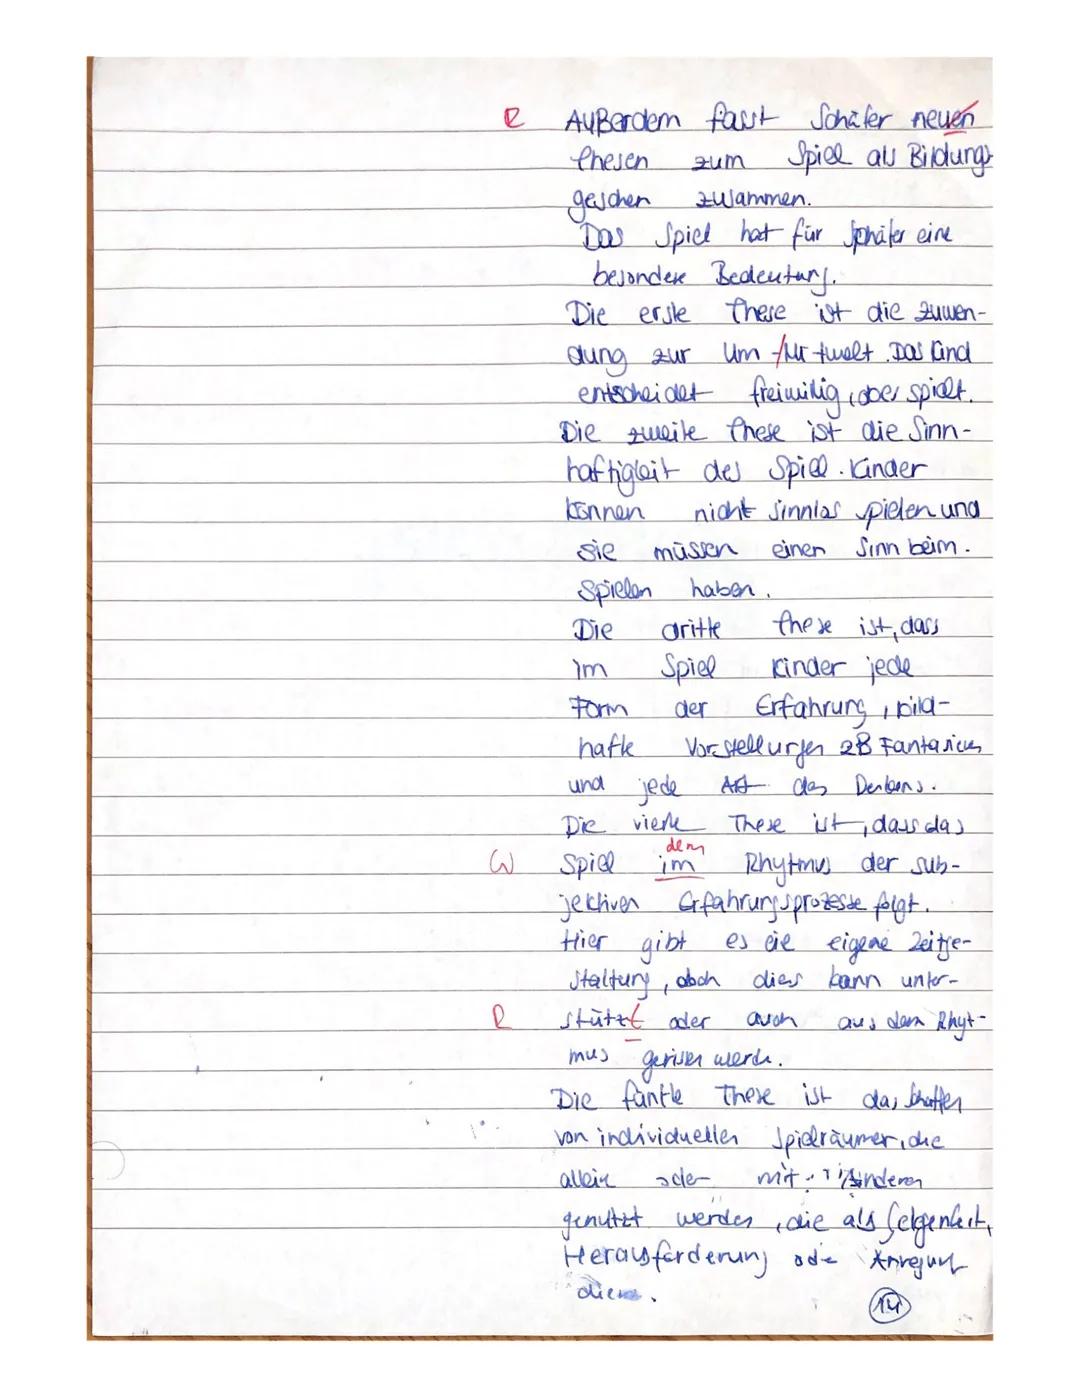 R Außerdem fasst Schäfer neuen
Thesen zum Spiel als Bildungs
geschen zusammen.
Das Spiel hat für Schäfer eine
besondere Bedeutung.
Die erste These ist die Zuwen-
dung zur Um-/Mitwelt. Das Kind
entscheidet freiwillig, ober spielt.
Die zweite These ist die Sinn-
haftigkeit des Spiel. Kinder
können nicht sinnlos spielen und
sie müssen einen Sinn beim.
Spielen haben.
Die dritte These ist, dass
im Spiel Kinder jede
Form der Erfahrung, bild-
hafte Vorstellungen zB Fantasien
und jede Art des Denkens.
Die vierte These ist, dass das
dem
W Spiel im Rhytmus der sub-
jektiven Erfahrungsprozesse folgt.
Hier gibt es eie eigene Zeitge-
staltung, doch dies kann unter-
R stützt oder auch aus dem Rhyt-
mus gerissen werde.
Die fünfte These ist das schaffen
von individuellen Spielräumen, die
allein oder mit anderen
genutzt werden, die als Gelgenheit,
Herausforderung ode Anregung
dienen.
14